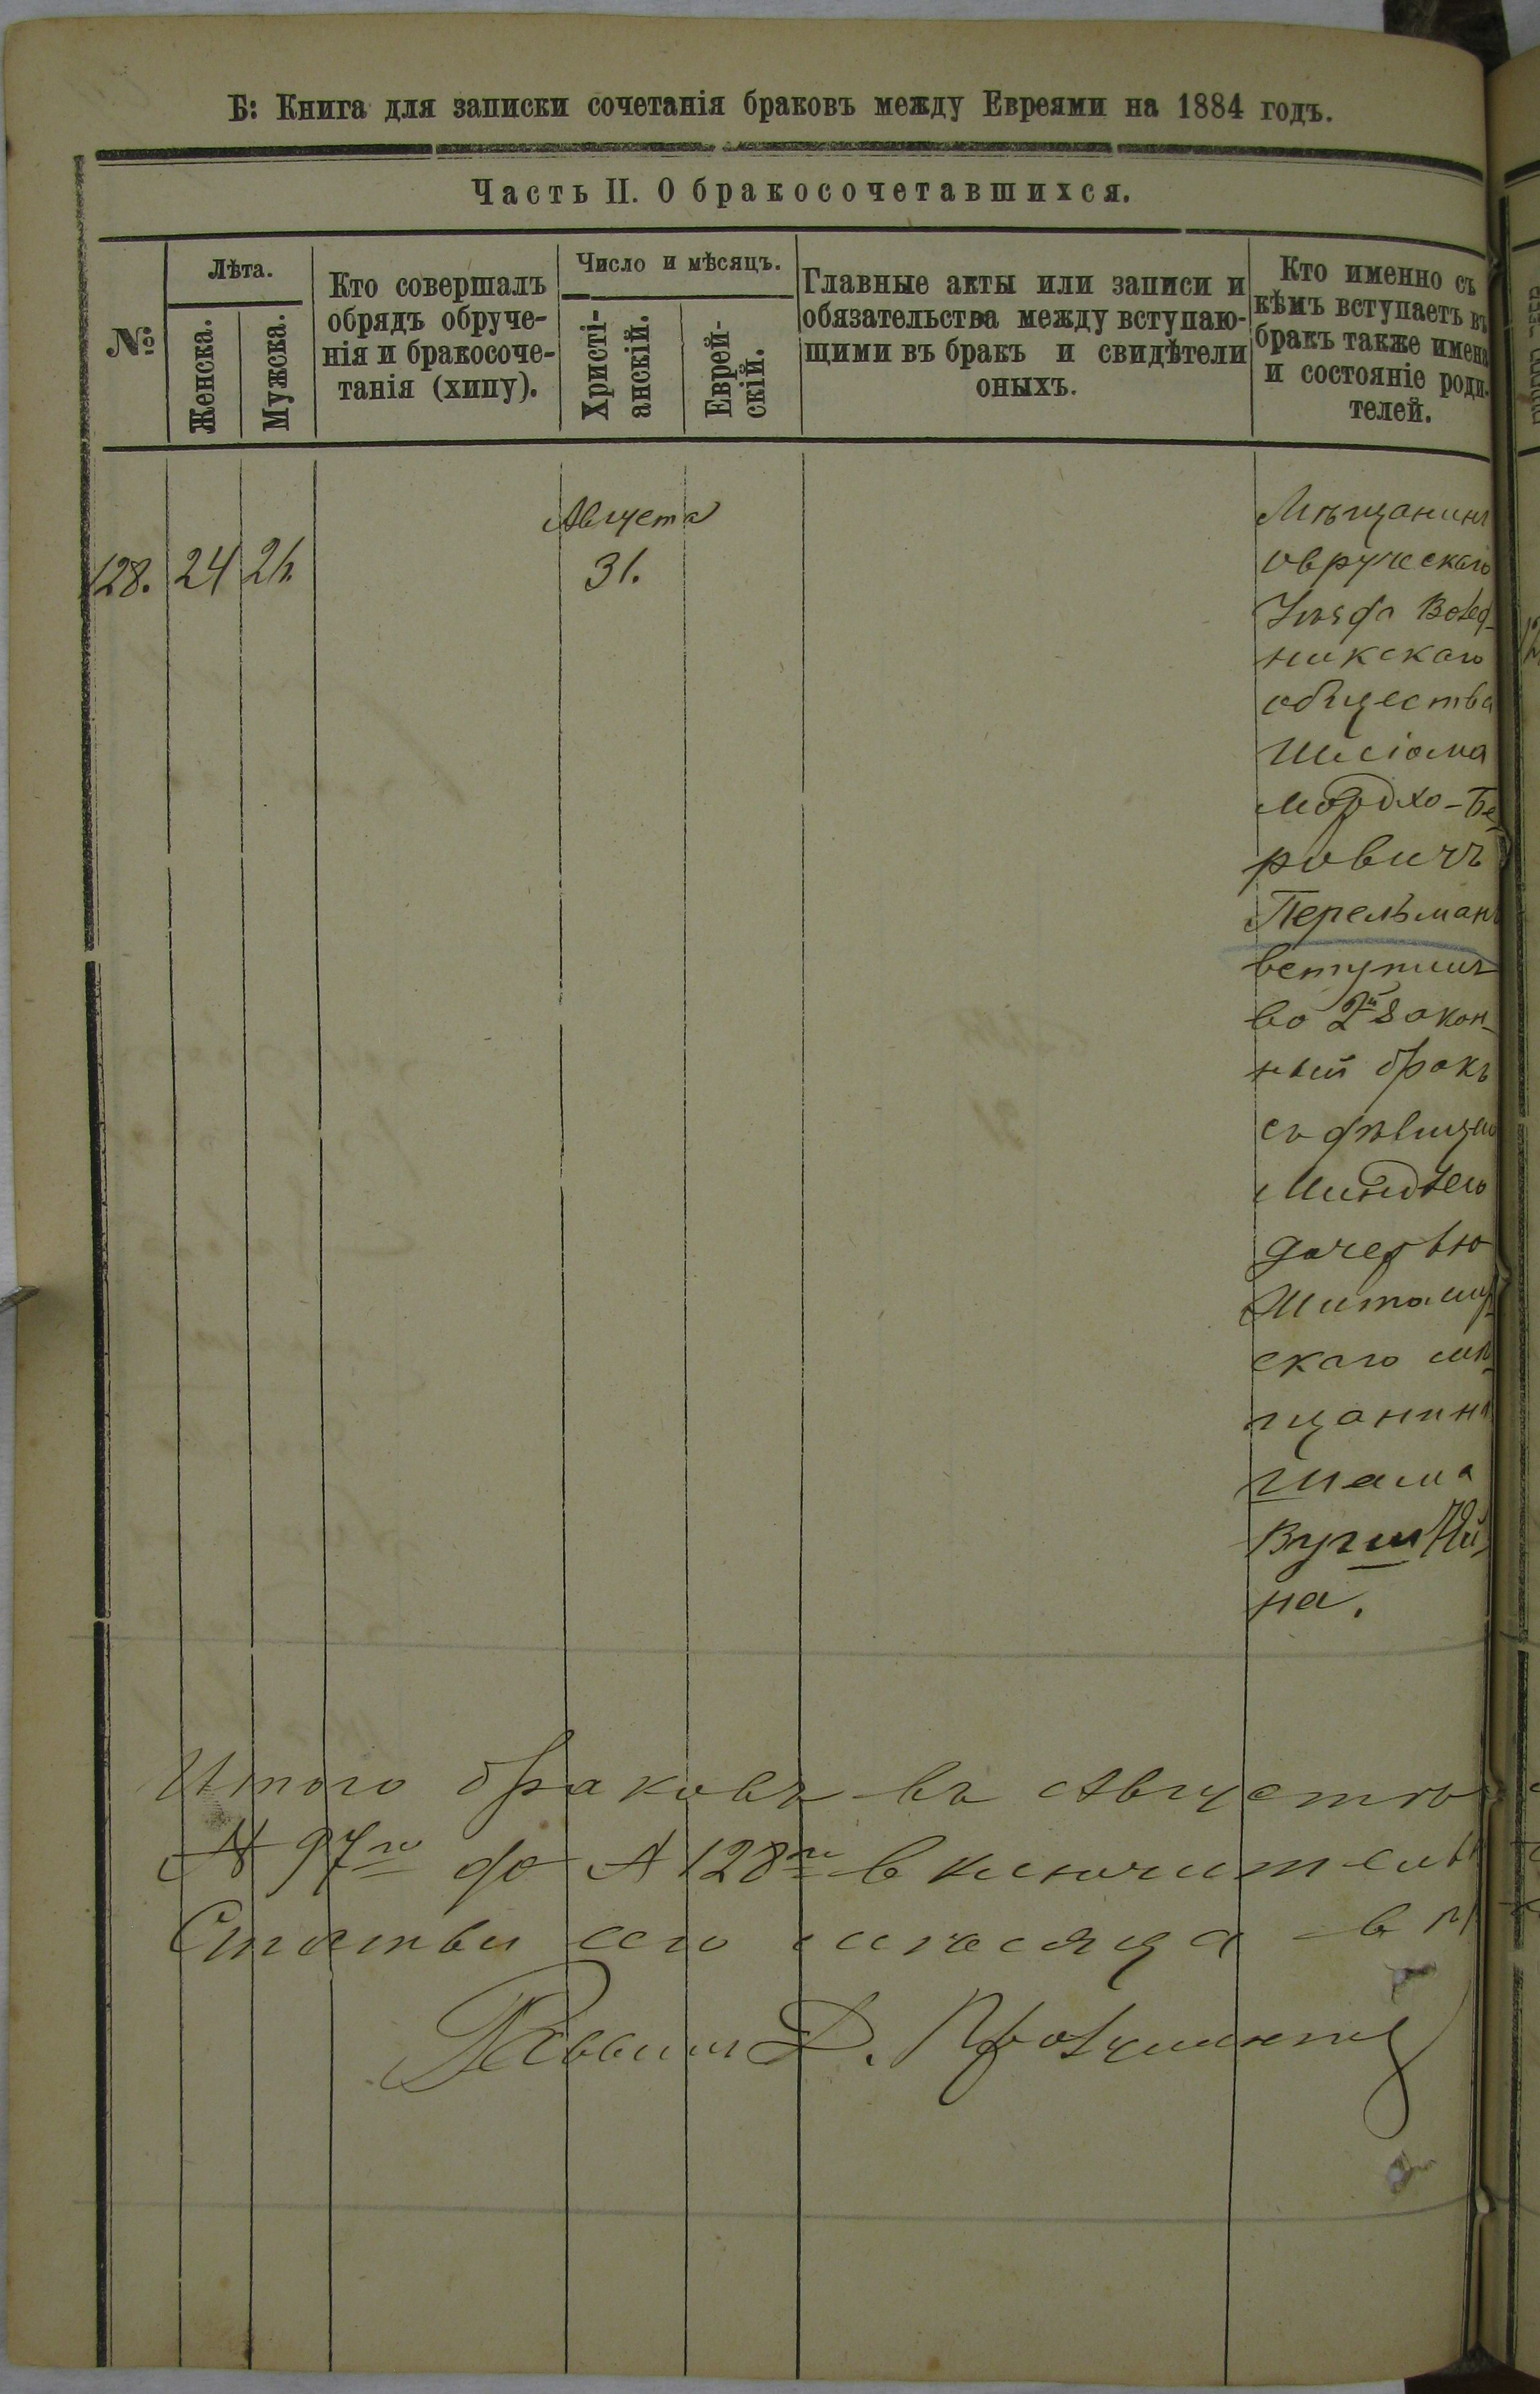 Б: Книга для записки сочетанія браковъ между Евреями на 1884 годъ.
Часть II. О бракосочетавшихся.
№
Лѣта.
Женска.
Мужска.
Кто совершалъ
обрядъ обруче-
нія и бракосоче-
танія (хипу).
Число и мѣсяцъ.
Христі-
анскій.
Еврей-
скій.
Главные акты или записи и
обязательства между вступаю-
щими въ бракъ и свидѣтели
оныхъ.
Кто именно съ
кѣмъ вступаетъ въ
бракъ также имена
и состояніе роди-
телей.
Августа
128. 24 31.
Мѣщанинъ
овручскаго
уѣзда
никскаго
общества
Шліома
Мордхо-Бе-
ровичъ
Перельманъ
вступилъ
во 2й закон-
ный бракъ
съ дѣвицею
Миндлею
дочерью
Житомир-
скаго мѣ-
щанина
на.
Итого браковъ въ Августѣ
№ 97го до № 128го включительн
сего мѣсяца в
Раввинъ